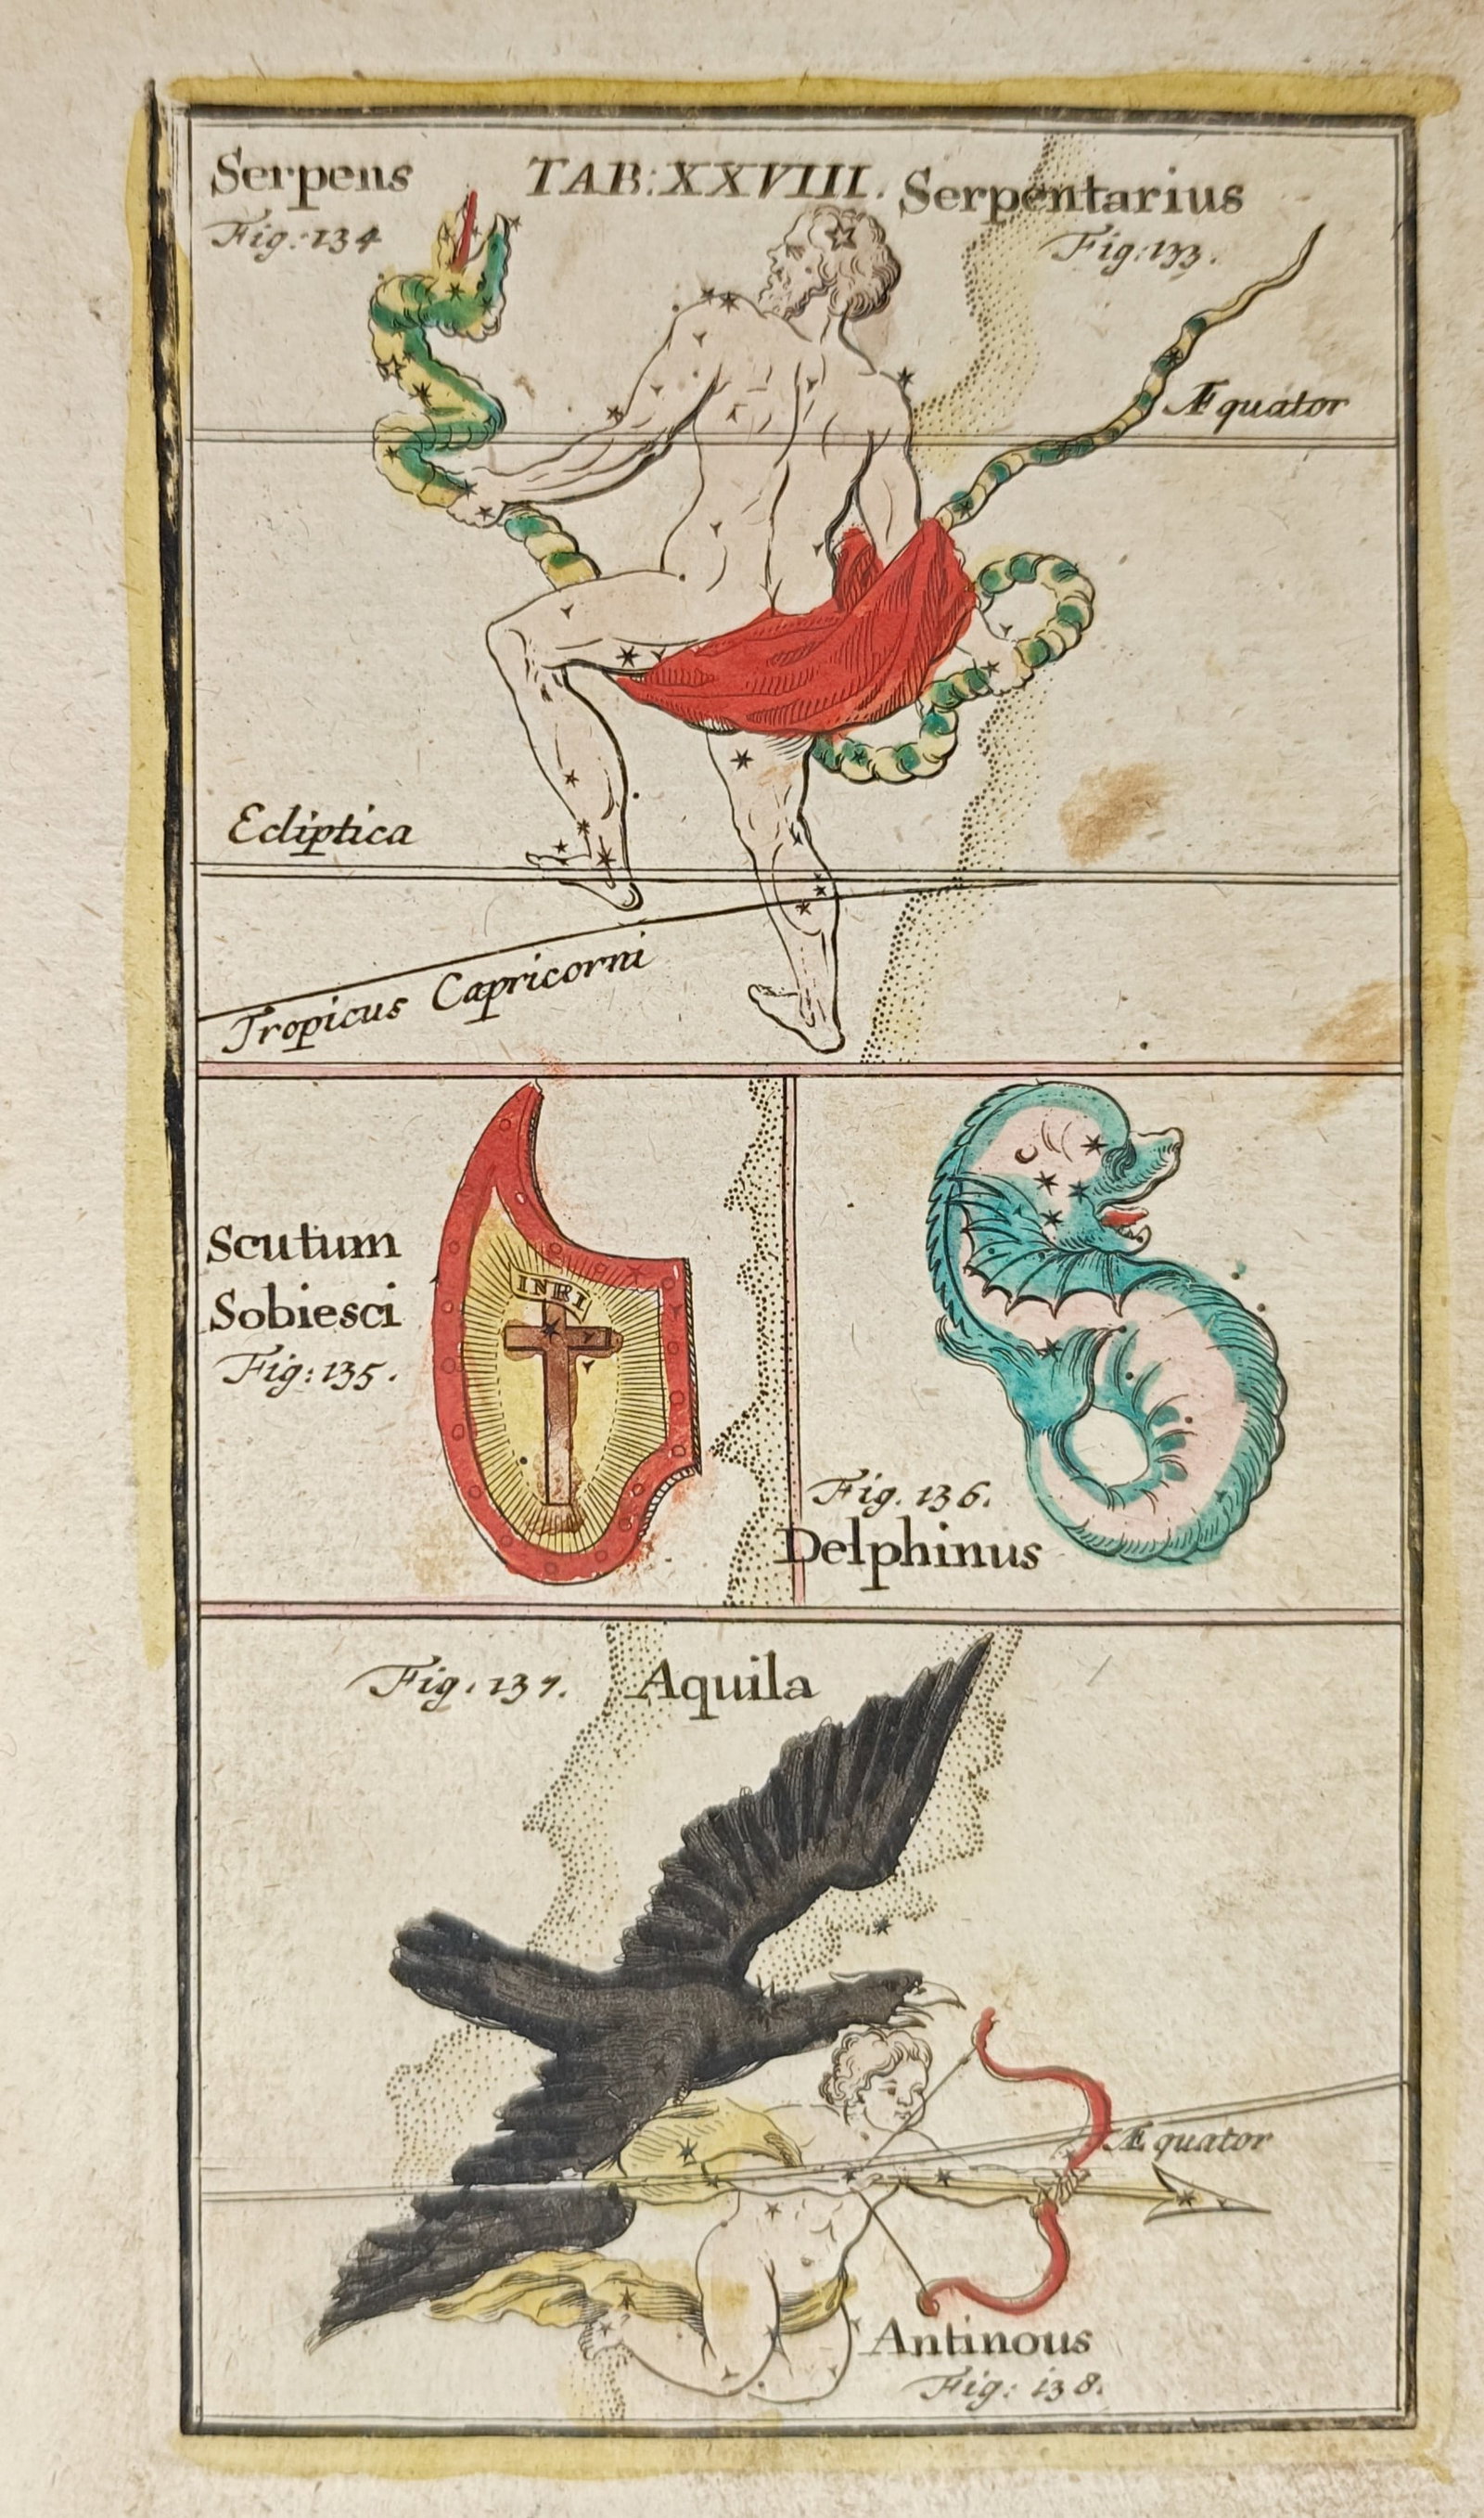 Serpens
Fig: 134
TAB: XXVIII.
Serpentarius
Fig: 133.
Æquator
Ecliptica
Tropicus Capricorni
Scutum
Sobiesci
Fig: 135.
INRI
Fig. 136.
Delphinus
Fig. 137.
Aquila
Æquator
Antinous
Fig: 138.